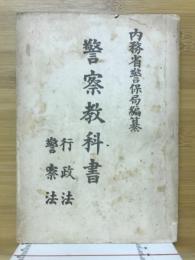 内務省警保局編纂
警察教科書
行政法
警察法